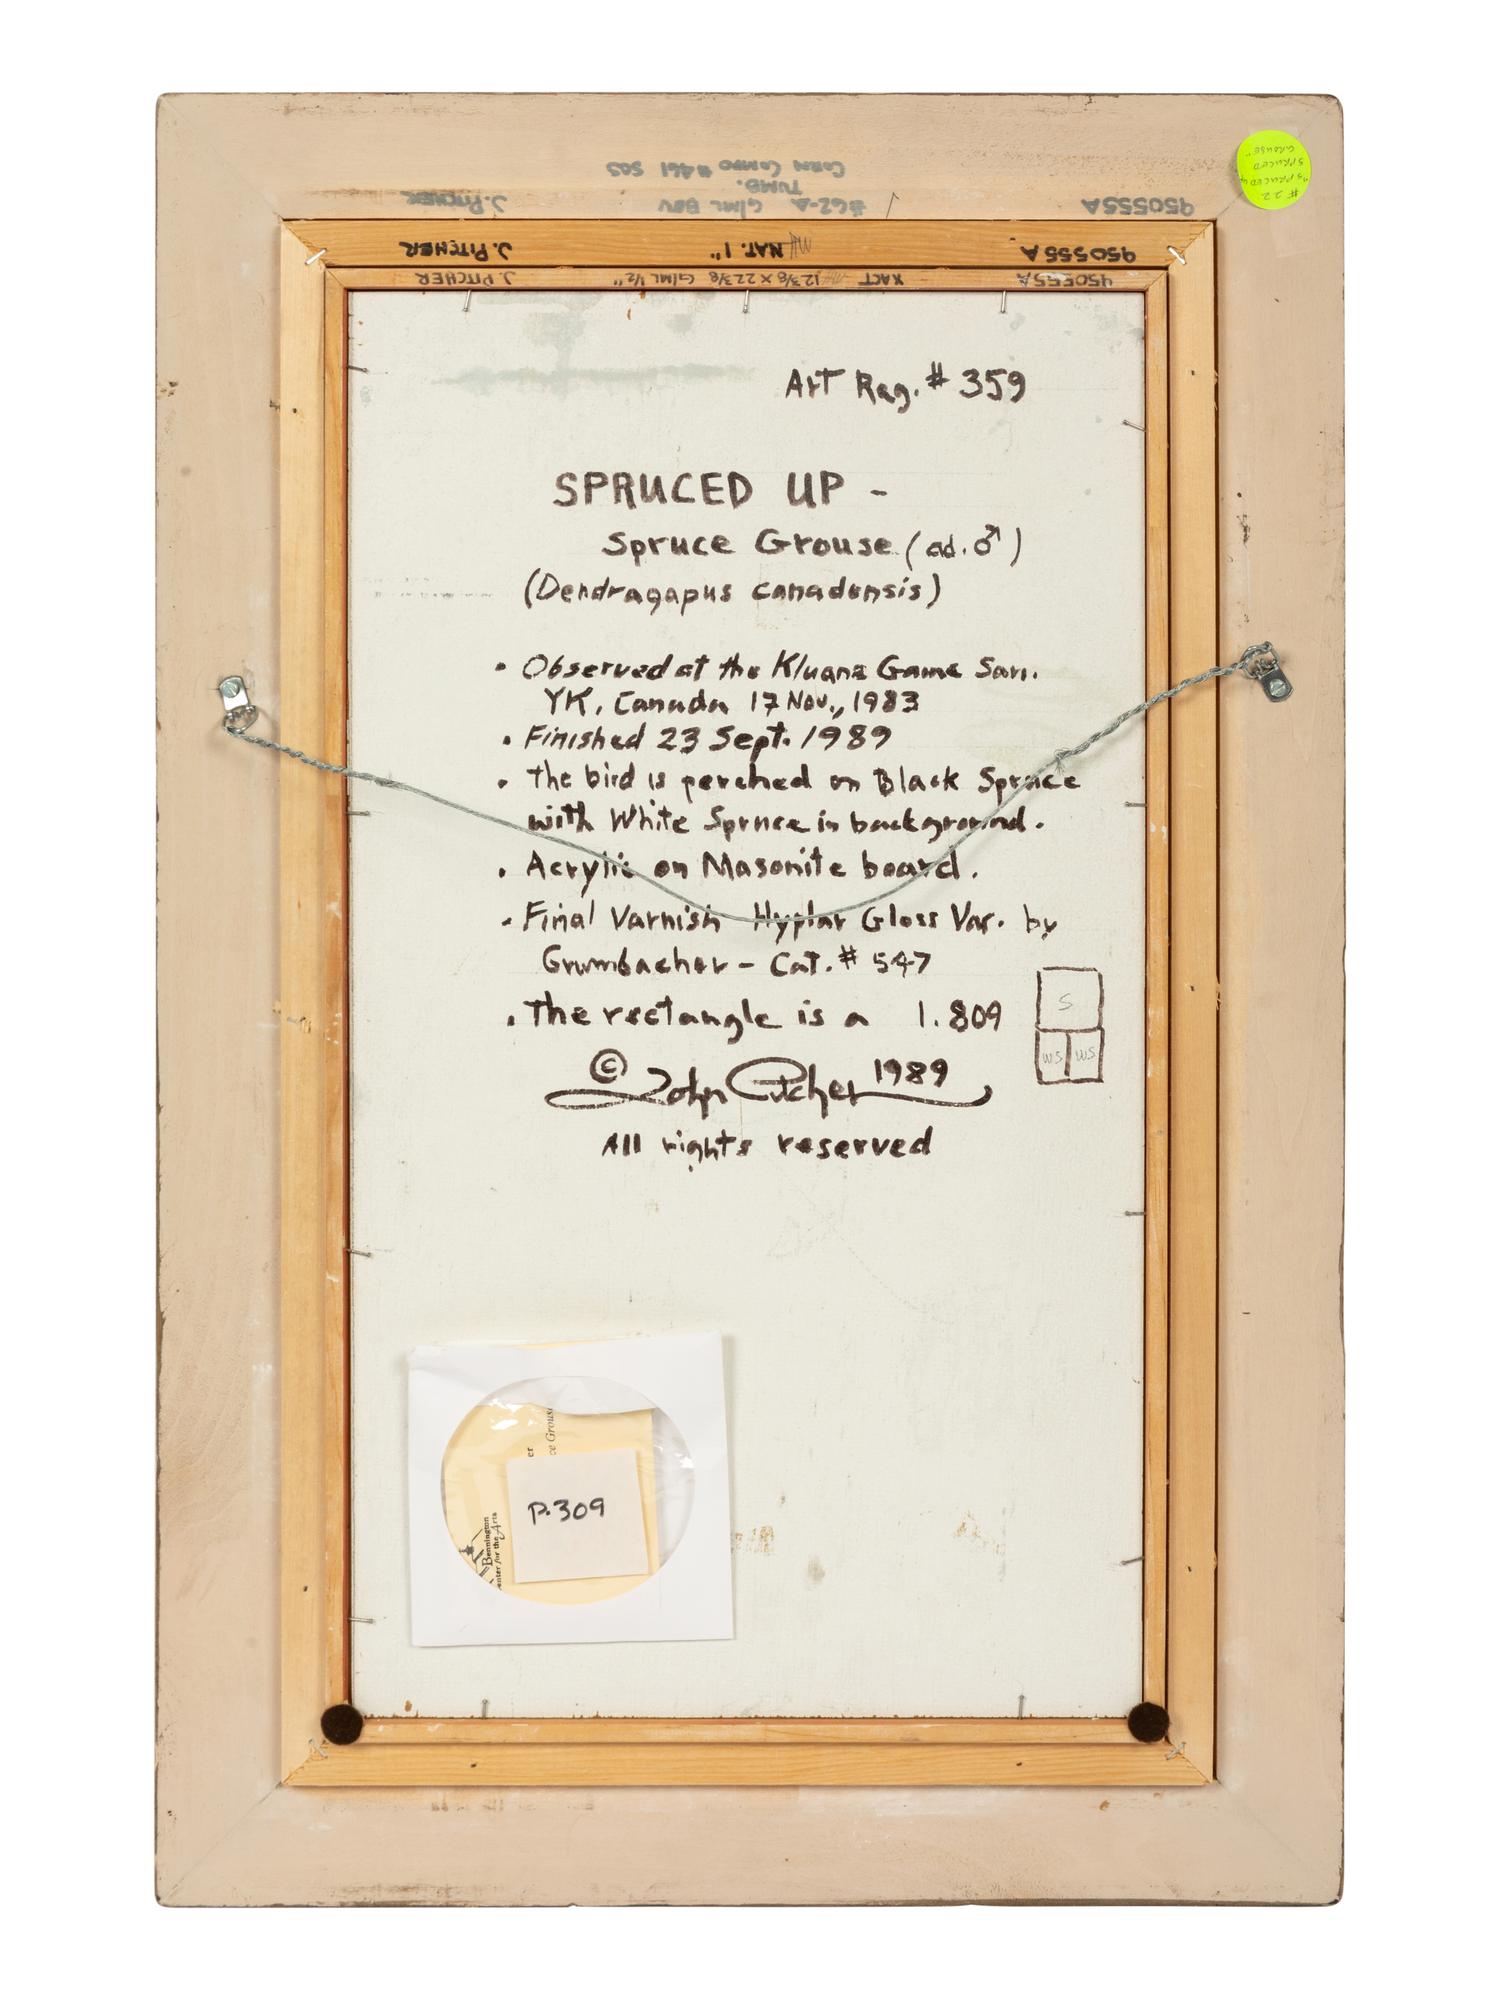 CORN COMPO #461 SOS
TUMB.
950555A / #GZ-A G/ML BOV J. PITCHER
950555A NAT. 1" J. PITCHER
950555A XACT 12 3/8 X 22 3/8 G/ML 1/2" J. PITCHER
#22
"SPRUCED up
SPRUCED
GROUSE"
Art Reg. # 359
SPRUCED UP -
Spruce Grouse (ad. ♂)
(Dendragapus canadensis)
• Observed at the Kluane Game San.
YK, Canada 17 Nov., 1983
• Finished 23 Sept. 1989
• The bird is perched on Black Spruce
with White Spruce in background.
• Acrylic on Masonite board.
• Final Varnish Hyplar Gloss Var. by
Grumbacher - Cat. # 547
• The rectangle is a 1.809
S
WS WS
© John Pitcher 1989
All rights reserved
er
ce Grouse
P.309
Bennington
enter for the Arts